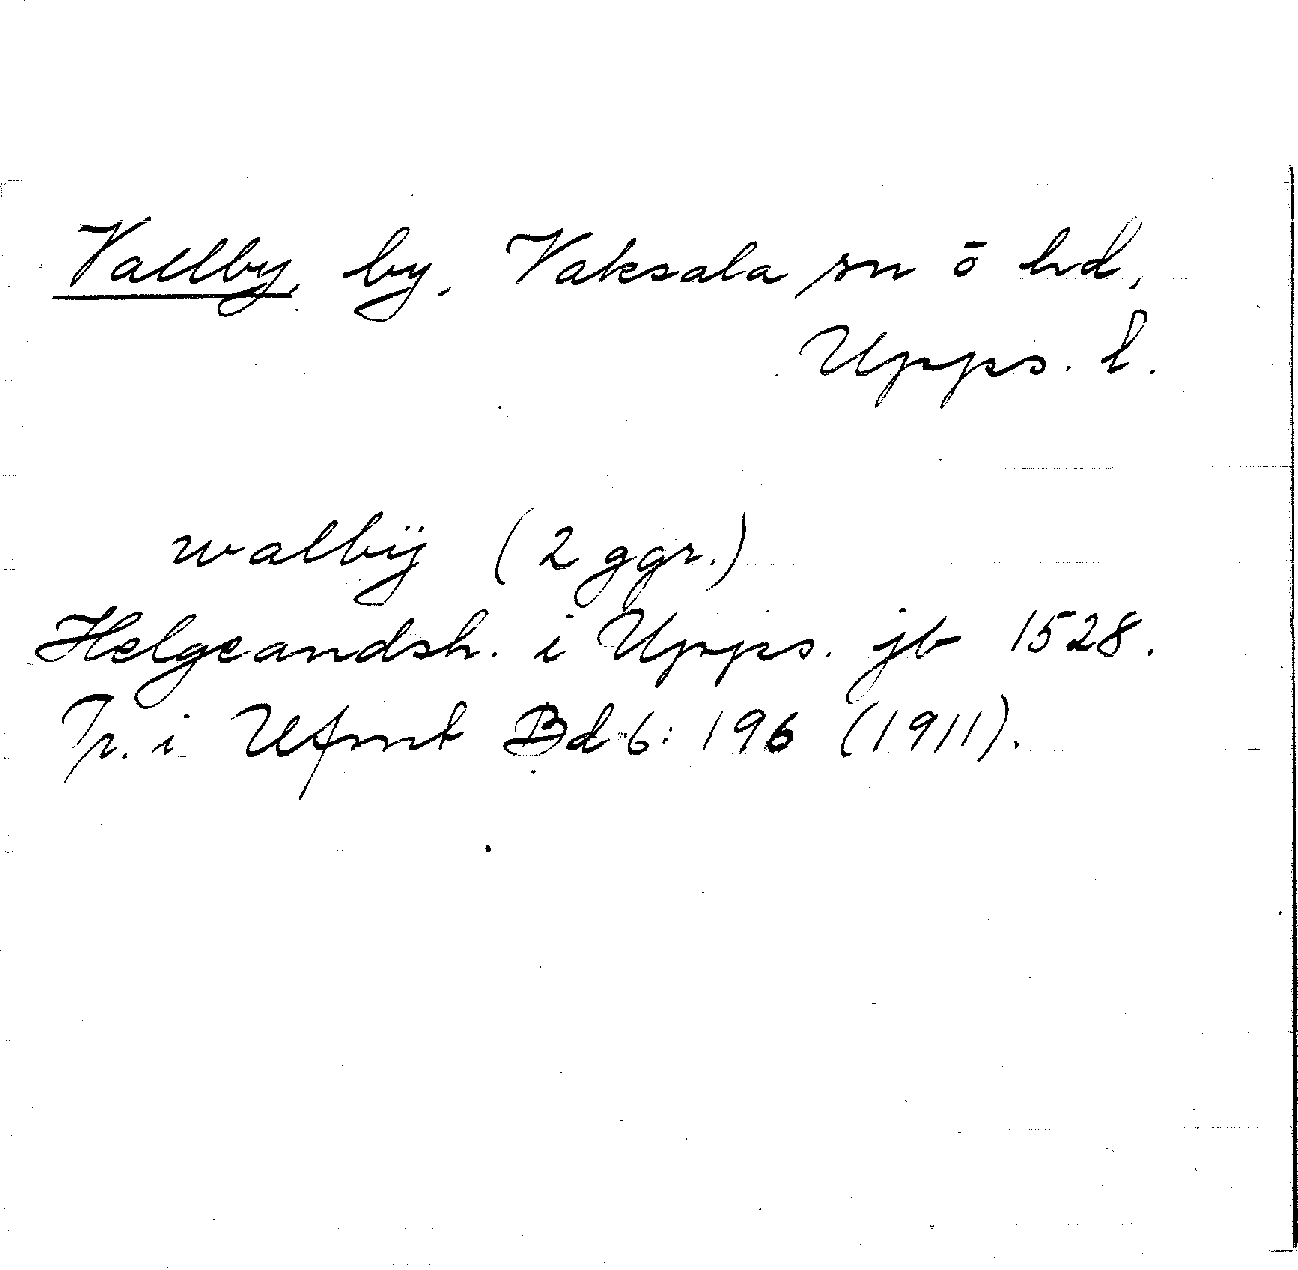 Vallby, by, Vaksala sn o hd,
Upps. l.
walbÿ (2 ggr.)
Helgeandsh. i Upps. jb 1528.
Tr. i Ufmt Bd 6: 196 (1911).